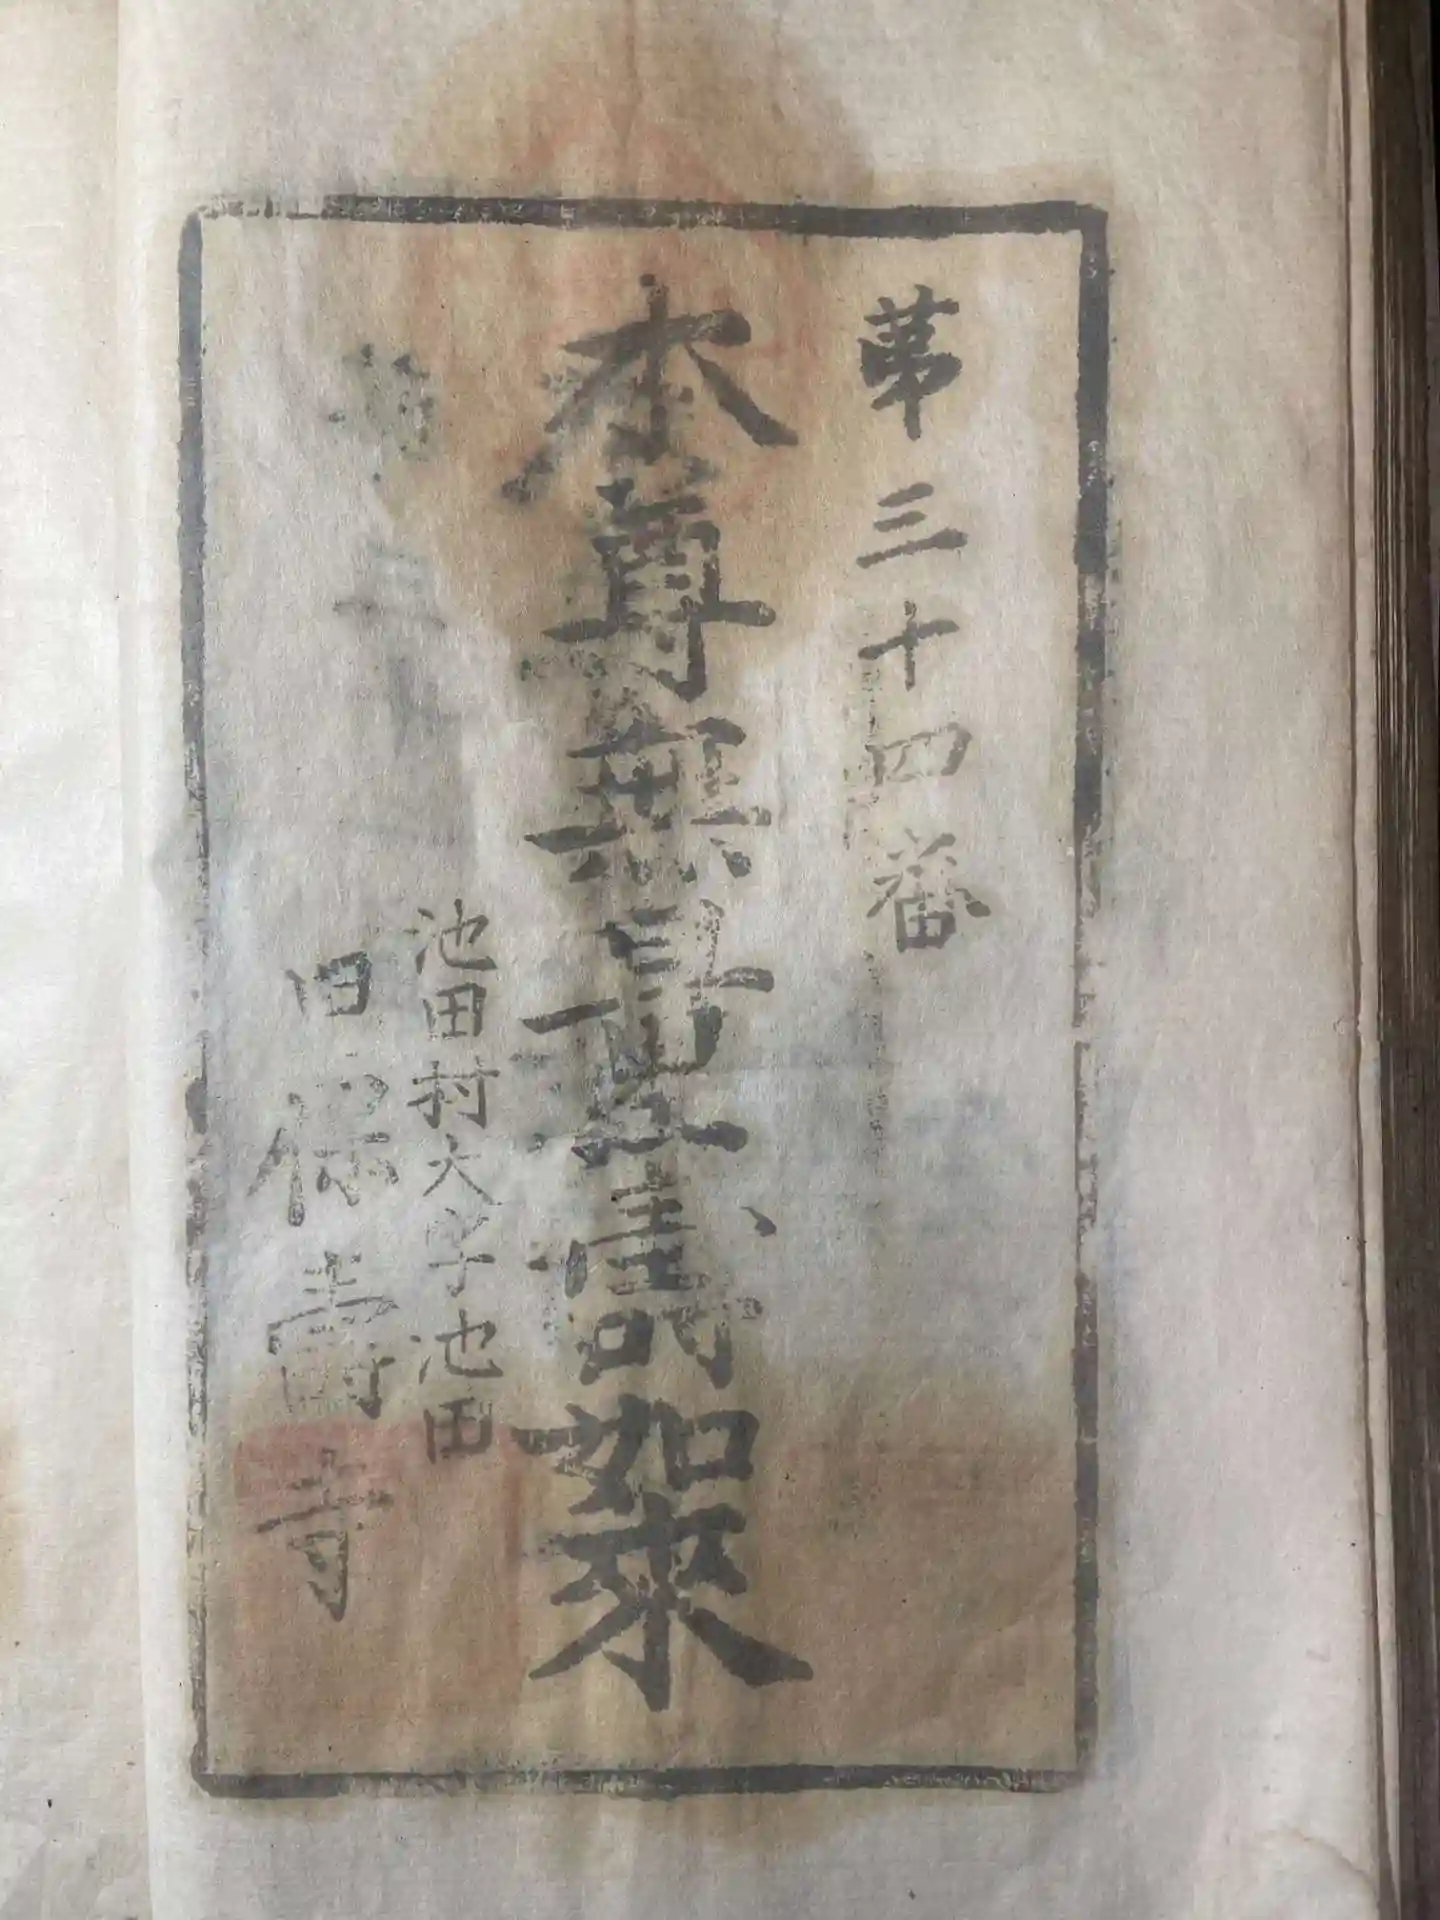 第三十四番
本尊無量壽如來
池田村大字池田
保壽寺